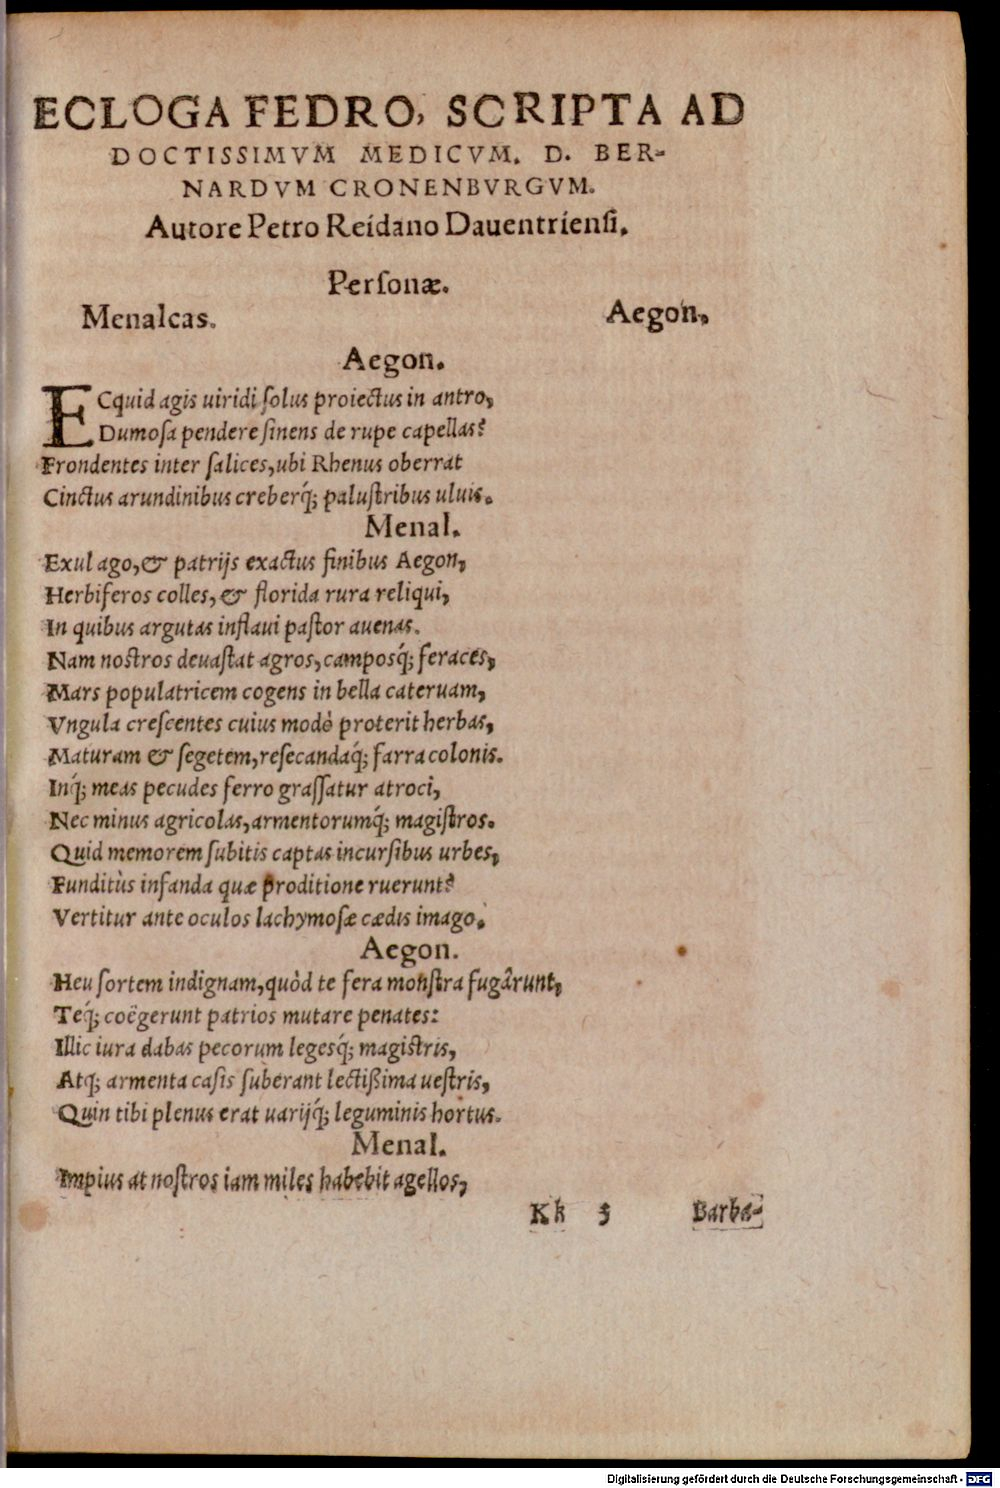 ECLOGA FEDRO, SCRIPTA AD
DOCTISSIMVM MEDICVM. D. BER-
NARDVM CRONENBVRGVM.
Autore Petro Reidano Dauentriensi.
Personæ.
Menalcas. Aegon,
Aegon.
ECquid agis uiridi solus proiectus in antro,
Dumosa pendere sinens de rupe capellas?
Frondentes inter salices, ubi Rhenus oberrat
Cinctus arundinibus creberq́; palustribus uluis.
Menal.
Exul ago, & patrijs exactus finibus Aegon,
Herbiferos colles, & florida rura reliqui,
In quibus argutas inflaui pastor auenas.
Nam nostros deuastat agros, camposq́; feraces,
Mars populatricem cogens in bella cateruam,
Vngula crescentes cuius modò proterit herbas,
Maturam & segetem, resecandaq́; farra colonis.
Inq́; meas pecudes ferro grassatur atroci,
Nec minus agricolas, armentorumq́; magistros.
Quid memorem subitis captas incursibus urbes,
Funditùs infanda quæ proditione ruerunt?
Vertitur ante oculos lachymosæ cædis imago.
Aegon.
Heu sortem indignam, quòd te fera monstra fugârunt,
Teq́; coëgerunt patrios mutare penates:
Illic iura dabas pecorum legesq́; magistris,
Atq; armenta casis suberant lectißima uestris,
Quin tibi plenus erat uarijq́; leguminis hortus.
Menal.
Impius at nostros iam miles habebit agellos,
Kk 3 Barba-
Digitalisierung gefördert durch die Deutsche Forschungsgemeinschaft - DFG